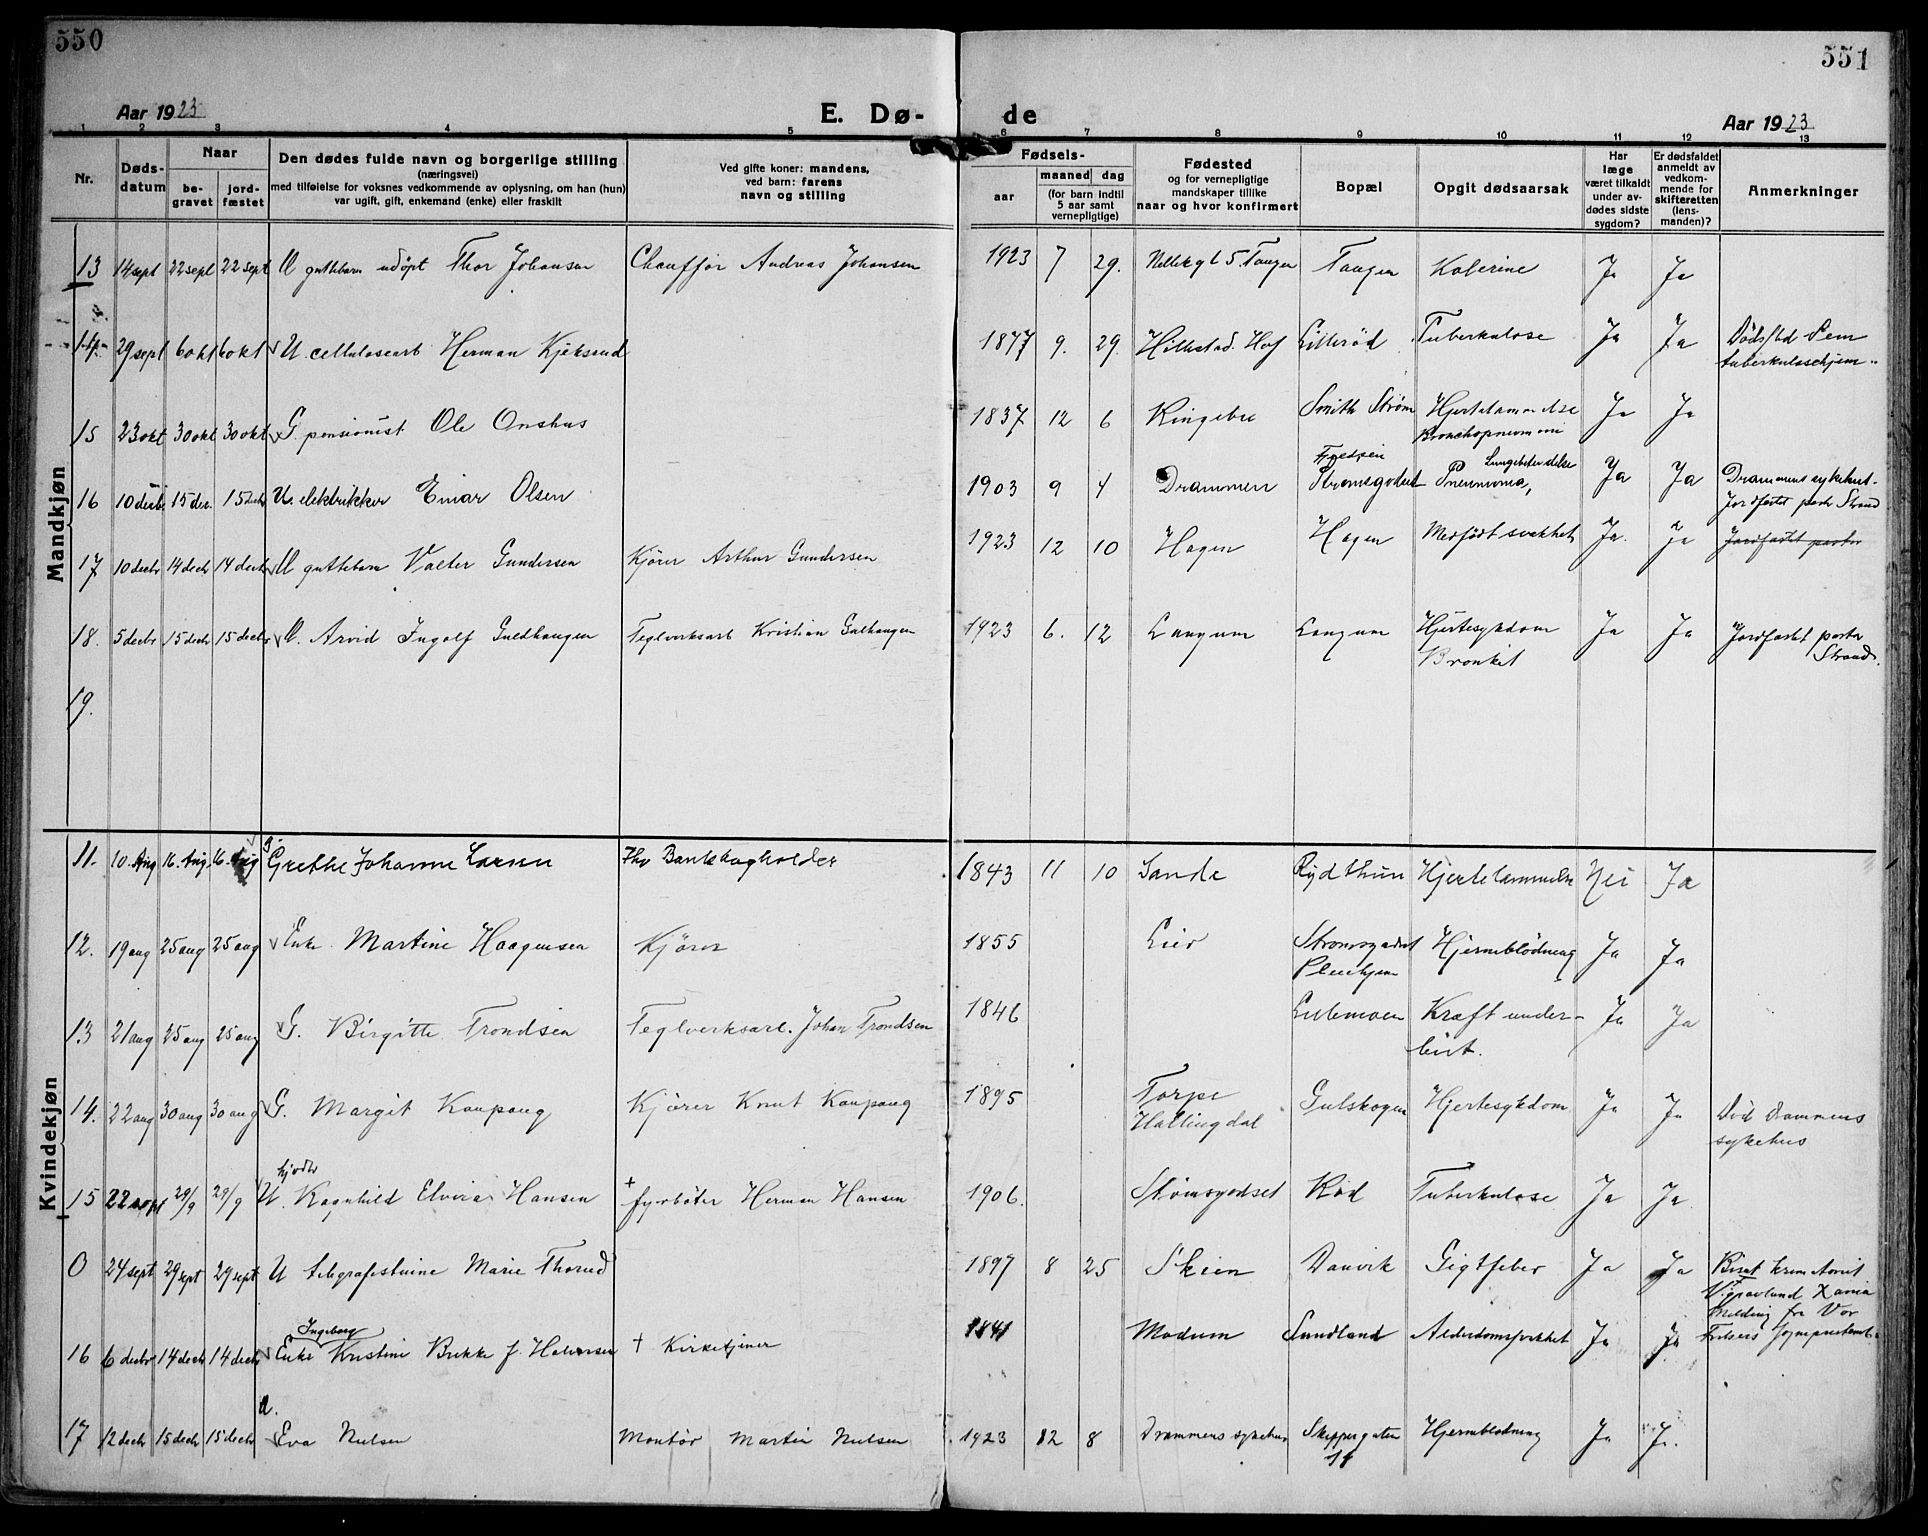 550
551
Aar 1923
E. Dø-
de
Aar 1923
1 2 3 4 5 6 7 8 9 10 11 12 13
Nr.
Døds-
datum
Naar
be-
gravet
jord-
fæstet
Den dødes fulde navn og borgerlige stilling
(næringsvei)
med tilføielse for voksnes vedkommende av oplysning, om han (hun)
var ugift, gift, enkemand (enke) eller fraskilt
Ved gifte koner: mandens,
ved barn: farens
navn og stilling
Fødsels-
aar
maaned dag
(for barn indtil
5 aar samt
vernepligtige)
Fødested
og for vernepligtige
mandskaper tillike
naar og hvor konfirmert
Bopæl
Opgit dødsaarsak
Har
læge
været tilkaldt
under av-
dødes sidste
sygdom?
Er dødsfaldet
anmeldt av
vedkom-
mende for
skifteretten
(lens-
manden)?
Anmerkninger
Mandkjøn
13 14 sept 22 sept 22 sept U guttebarn udøpt Thor Johansen Chauffør Andreas Johansen 1923 7 29. Tangen Tangen Ja Ja
14 29 sept 6 okt 6 okt U. cellulosearb Herman Kjeksrud 1877 9. 29. Hillestad. Hof Lillerød Tuberkulose Ja Ja Dødsted Sem
tuberkulosehjem
15 23 okt 30 okt 30 okt G. pensionist Ole Onshus 1837 12 6 Ringebu Smith Strøm Hjertelammelse Ja Ja
Bronchopneumoni
16 10 decbr 15 dec. 15 decbr U. elektrikker Einar Olsen 1903 9 4 Drammen Strømsgodset Pneumoni, Lungebetændelse Ja Ja Drammens sykehus.
Jordfæstet pastor Strand
17 10 decbr 14 decbr 14 decbr U guttebarn Valter Gundersen Kjører Arthur Gundersen 1923 12 10 Hagen Hagen Medfødt svakhet Ja. Ja Jordfæstet pastor
18. 5 decbr 15 decbr 15 decbr U. Arvid Ingolf Guldhaugen Teglverksarb Kristian Gulhaugen 1923 6. 12 Langum Langum Hjertesykdom Ja Ja Jordfæstet pastor
Bronkit Strand.
19.
Kvindekjøn
11. 10. Aug 16. Aug. 16. Aug G Grethe Johanne Larsen Thv Bankbogholder 1843 11 10 Sande Rydthun Hjertelammelse Nei Ja
12. 19 aug 25 aug 25 aug Enke Martine Haagensen Kjører 1855 Lier Strømsgodset Hjerneblødning Ja Ja
Pleiehjem
13 21 aug 25 aug 25 aug G. Birgitte Trondsen Teglverksarb. Johan Trondsen 1846 Lulemoen Kræft under- Ja Ja
livet.
14. 22 aug 30 aug 30 aug G. Margit Kaupang Kjører Knut Kaupang 1895 Torpe Gulskogen Hjertesykdom Ja Ja Død Dammens
Hallingdal sykehus
15 22 sept 29/9 29/9 U. Ragnhild Elvira Hansen + fyrbøter Herman Hansen 1906. Strømsgodset Rød Tuberkulose Ja Ja
0 24 sept 29 sept 29 sept U telegrafistinne Marie Thorud 1897 8 25 Skien Danvik Gigtfeber Ja Ja
melding fra Vor
Frelsers
Ingeborg
16 6 decbr 14 decbr 14 decbr Enke Kristine Bakke f. Halvorsen + Kirketjener 1841 Modum Sundland Alderdomssvakhet Ja Ja
U.
17 12 decbr 15 decbr 15 decbr Eva Nilsen Montør Martin Nilsen 1923 12 8 Drammens sykehus Skippergaten Hjerneblødning Ja Ja.
11